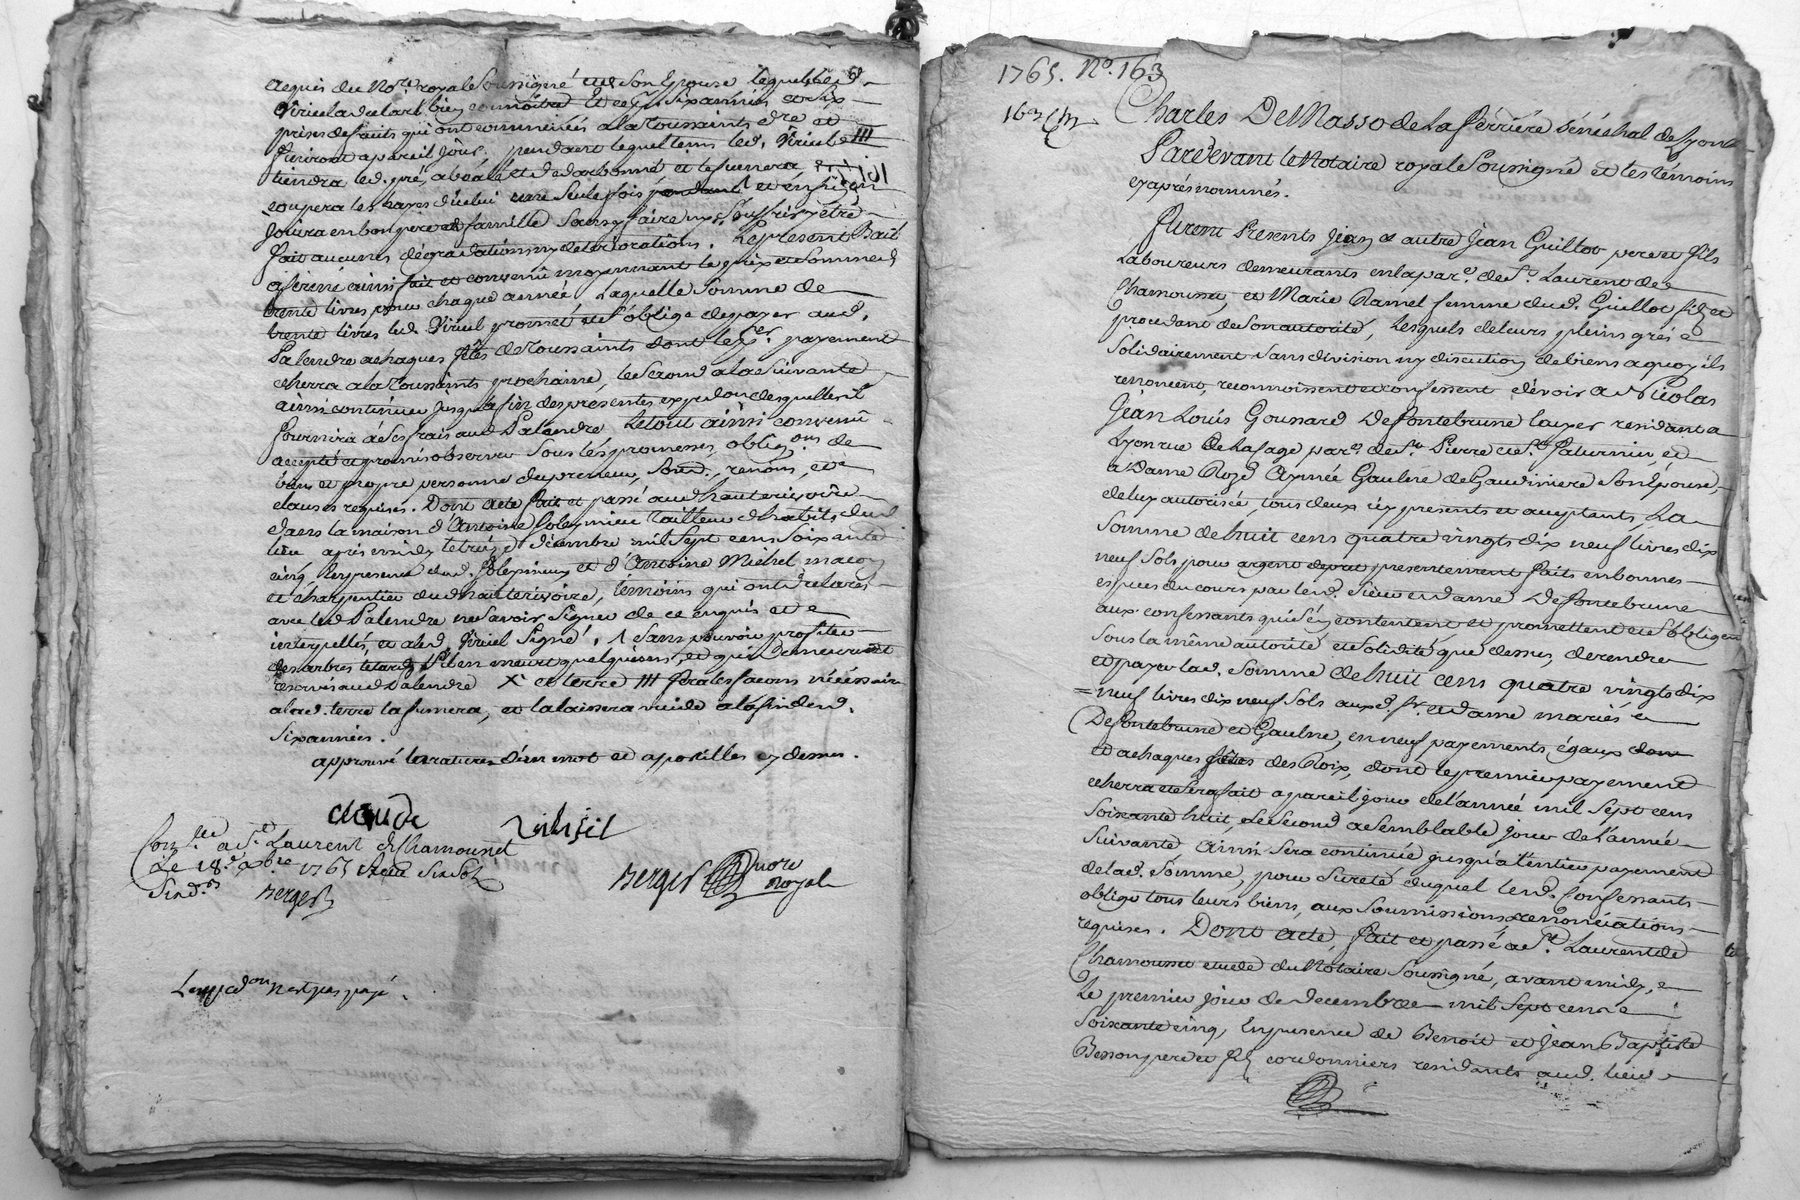 acquis du No.re royal soussigné et de son Epouse lequel led.
Viriel a declaré bien connoître Et ce p.r six années et six
prises de fruits qui ont commencés a la toussaints d.re et
finiront a pareil jour. pendant lequel tems led. Viriel
tiendra led. pré, aboalé et et le fumera
coupera les hayes d'icelui une seule fois pendant et enfin en
jouira en bon pere de famille sans y faire ny souffrir être
fait aucunes dégradations ny deteriorations. Le present Bail
à ferme ainsi fait et convenu moyennant le prix et somme de
trente livres pour chaque année Laquelle somme de
trente livres led. Viriel promet et s'oblige de payer aud.
Palendre a chaques fêtes de toussaints dont le p.er payement
echerra a la toussaints prochaine, le second a la suivante
ainsi continuer jusqu'a fin des presentes expedon desquelles il
fournira à ses frais aud Palendre Le tout ainsi convenu
accepté et promis observer sous les promesses, oblig.ons de
biens et propre personne du preneur, soum. renons. et
clauses requises. Dont acte fait et passé aud hauterivoire
dans la maison d'Antoine tailleur d'habits dud
lieu après midy le treize decembre mil sept cens soixante
cinq En presence dud. et d'Antoine Michel maçon
et charpentier dud hauterivoire, témoins qui ont declarés
avec led Palendre ne savoir signer de ce enquis et
interpellés, et a led. Viriel signé. sans pouvoir profiter
des arbres s'il en meurt quelqu'uns, et qui demeurent
reservés aud Palendre X et terre III fera les façons nécéssaires
a lad. terre la fumera, et la laissera vuide a la fin desd.
six années.
approuvé la rature d'un mot et apostilles cy dessus.
claude viriel
Con.lé a S.t Laurent de Chamousset
Le 18.e xbre 1765 Reçu six sols
six d.rs Berger
Berger no.re royal
L'expedon n'est pas payé.
1765. N.o 163
163
Charles De Masso de la ferrière sénéchal de Lyon
Pardevant le Notaire royal soussigné et les témoins
cy après nommés.
Furent Presents Jean et autre Jean Guillot pere et fils
Laboureurs demeurants en la par.e de S.t Laurent de
Chamousset, et Marie Ramel femme dud. Guillot fils et
procedant de son autorité, Lesquels de leurs pleins grés
solidairement sans division ny discution de biens a quoy ils
renoncent, reconnoissent et confessent devoir a S.r Nicolas
Jean Louis Goussard Defontebrune resident a
Lyon rue de par.e de S.t Pierre et S.t Saturnin, et
a Dame Roze Aymée Gaulne de Gaudiniere son Epouse,
de luy autorisée, tous deux icy presents et acceptants, La
somme de huit cens quatre vingts dix neuf livres dix
neuf sols pour argent dpret presentement faits en bonnes
especes du cours par lesd. sieur et dame Defontebrune
aux confessants qui s'en contentent et promettent et s'obligent
sous la même autorité et solidité que dessus, de rendre
et payer lad. somme de huit cens quatre vingts dix
=neuf livres dix neuf sols auxd. sr. et dame mariés
Defontebrune et Gaulne, en neuf payements égaux
et a chaques fêtes des Roix, dont le premier payement
echerra et sera fait a pareil jour de l'année mil sept cens
soixante huit, Le second a semblable jour de l'année
suivante, ainsi sera continué jusqu'a l'entier payement
de lad. somme, pour sureté duquel lesd. confessants
obligent tous leurs biens, aux soumissions, renonciations
requises. Dont acte, fait et passé a S.t Laurent de
Chamousset etude du Notaire soussigné, avant midy,
Le premier jour de decembre mil sept cens
soixante cinq, En presence de Benoit et Jean Baptiste
Besson pere et fils cordonniers residants aud. lieu